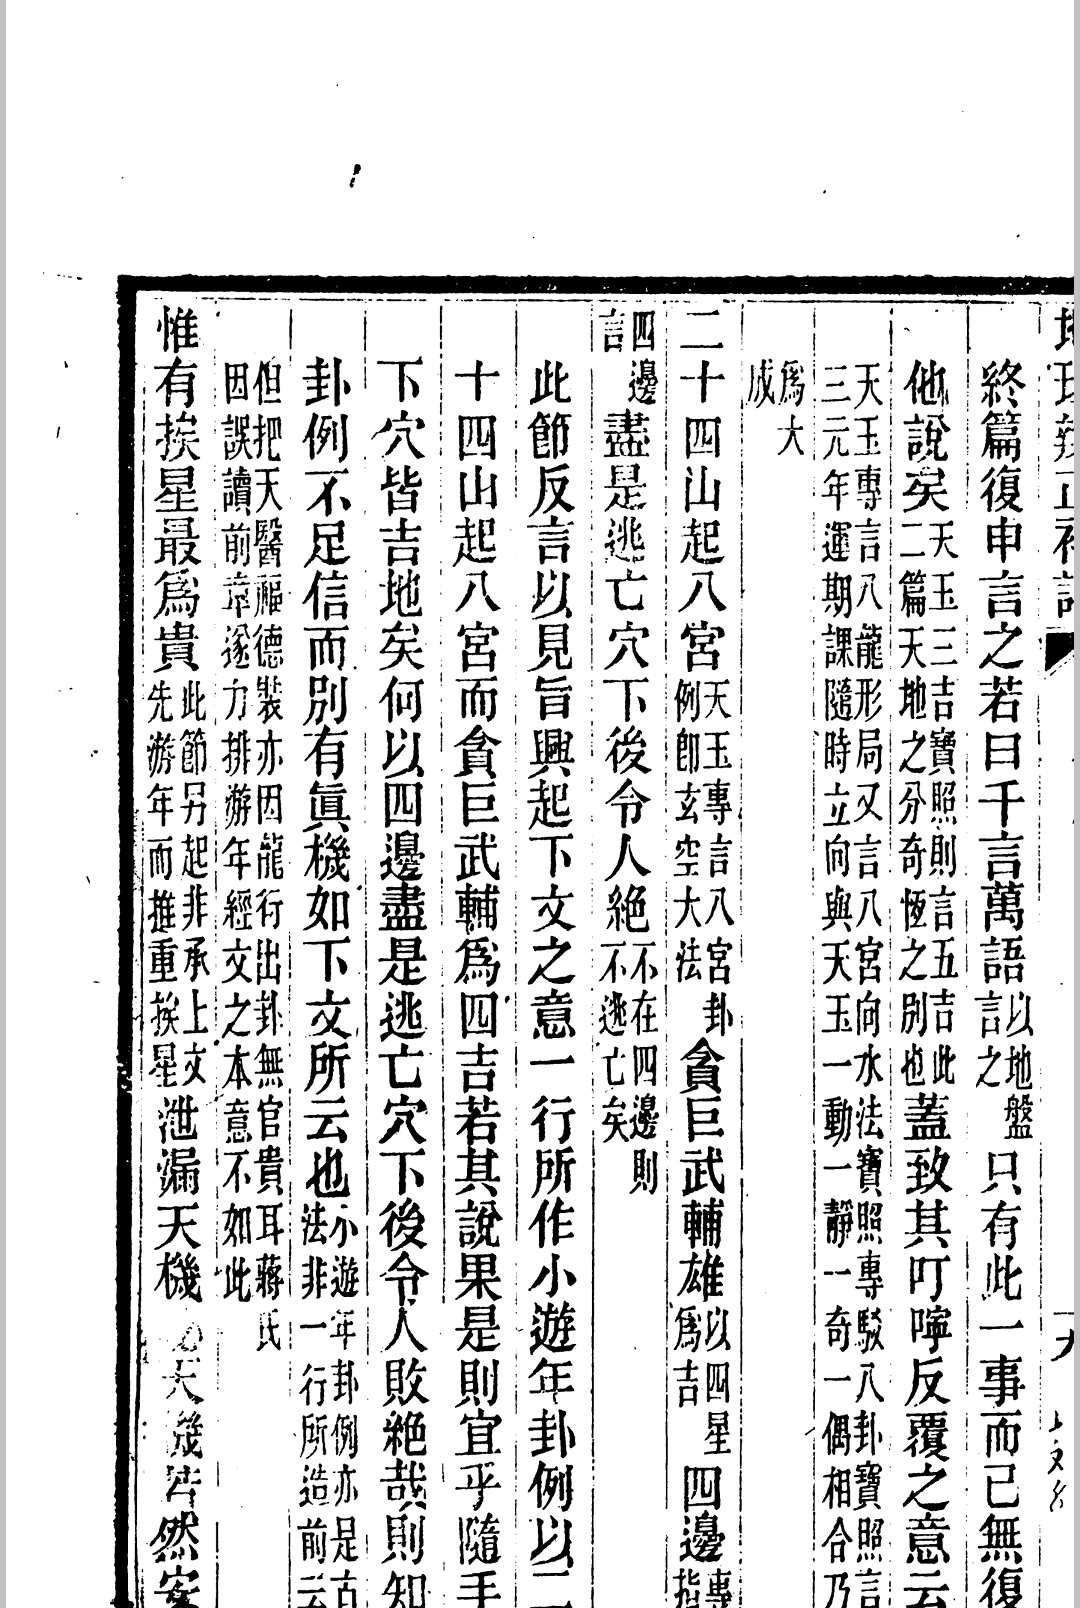 終篇復申言之若曰千言萬語以地盤言之只有此一事而已無復
他說矣天玉三吉寶照則言五吉此二篇天地之分奇恆之別也蓋致其叮嚀反覆之意云
天玉專言八龍形局又言八宮向水法寶照專駁八卦寶照言
三元年運期課隨時立向與天玉一動一靜一奇一偶相合乃
爲大
成
二十四山起八宮天玉專言八宮卦例卽玄空大法貪巨武輔雄以四星爲吉四邊專指
四邊言盡是逃亡穴下後令人絶不在四邊則不逃亡矣
此節反言以見旨興起下文之意一行所作小遊年卦例以二
十四山起八宮而貪巨武輔爲四吉若其說果是則宜乎隨手
下穴皆吉地矣何以四邊盡是逃亡穴下後令人敗絶哉則知
卦例不足信而別有眞機如下文所云也小遊年卦例亦是古法非一行所造前云
但把天醫福德裝亦因龍行出卦無官貴耳蔣氏
因誤讀前章遂力排游年經文之本意不如此
惟有挨星最爲貴此節另起非承上文先游年而推重挨星泄漏天機天機皆然案